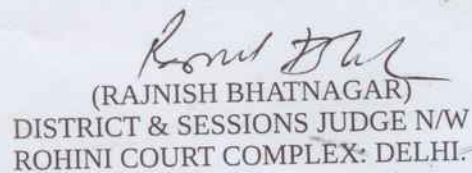 (RAJNISH BHATNAGAR)
DISTRICT & SESSIONS JUDGE N/W
ROHINI COURT COMPLEX: DELHI.